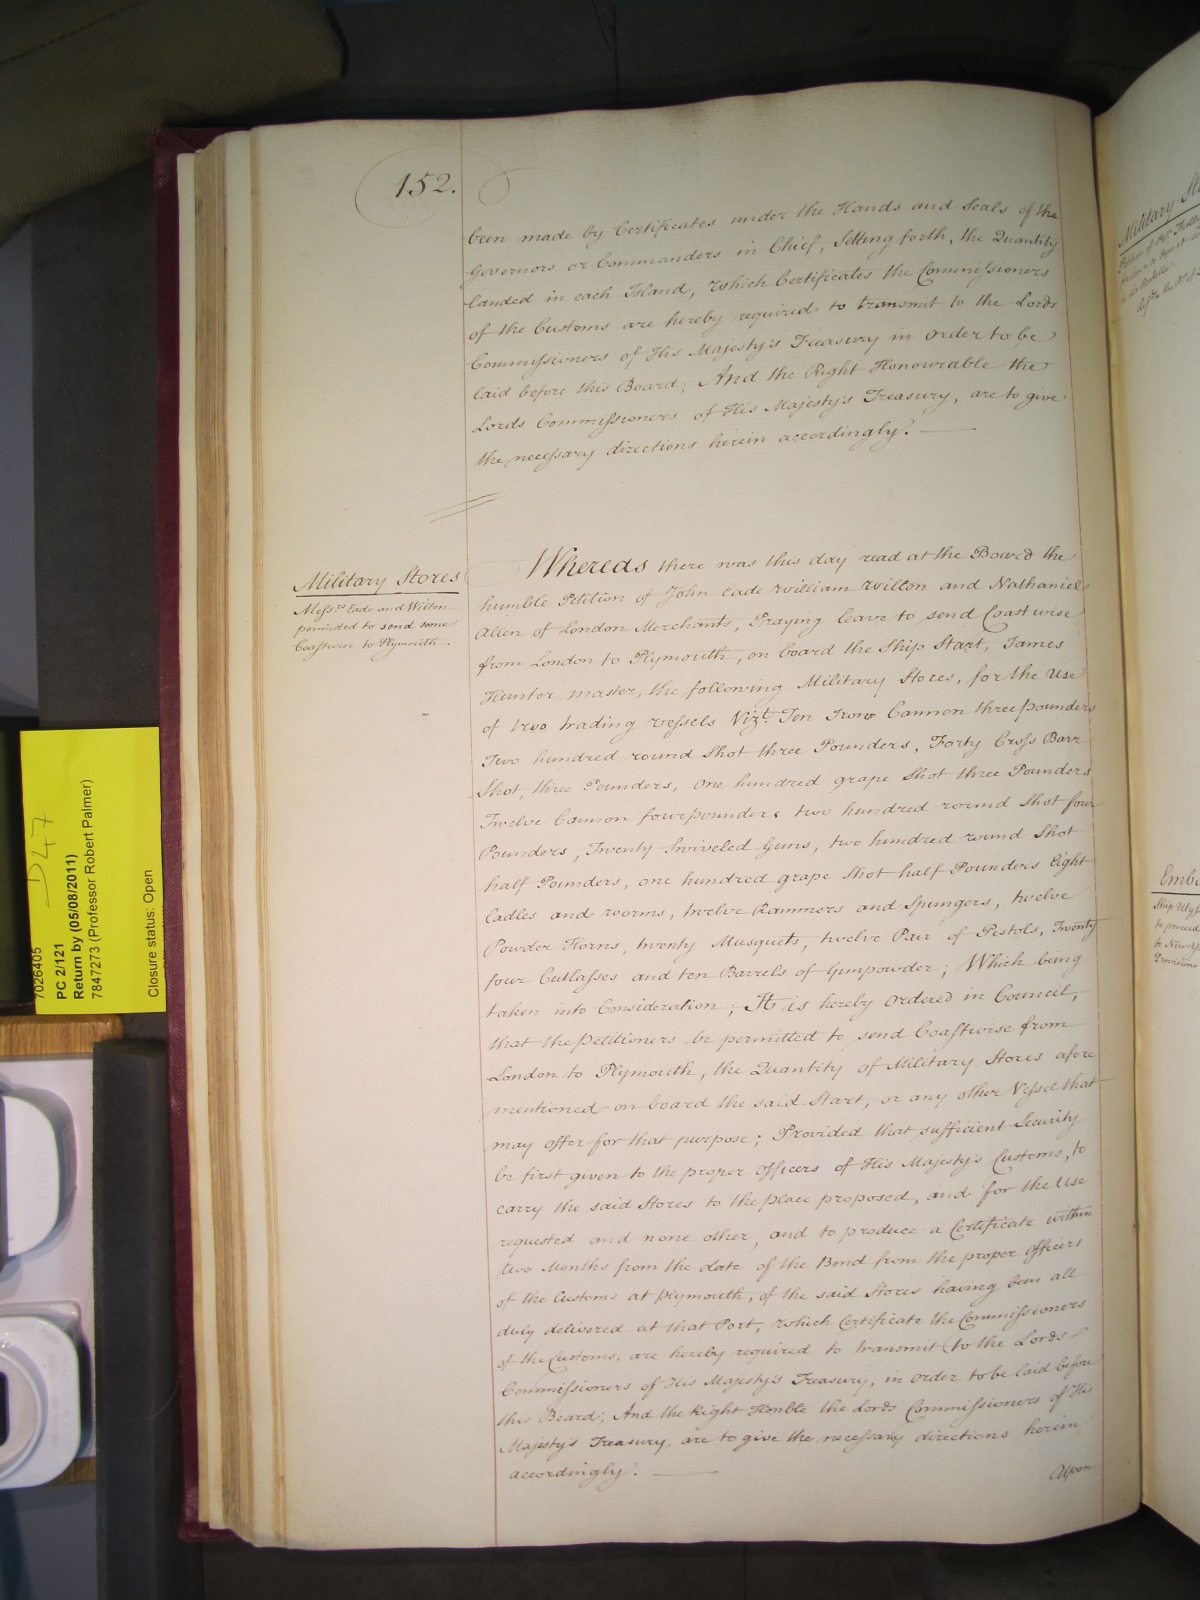 152.
been made by Certificates under the Hands and Seals of the
Governors or Commanders in Chief, Setting forth, the Quantity
landed in each Island, which Certificates the Commissioners
of the Customs are hereby required to transmit to the Lords
Commissioners of His Majesty's Treasury in Order to be
laid before this Board; And the Right Honourable the
Lords Commissioners of His Majesty's Treasury, are to give
the necessary directions herein accordingly.
Military Stores
Mess.rs Eade and Wilton
permitted to send some
Coastwise to Plymouth.
Whereas there was this day read at the Board the
humble Petition of John Eade William Wilton and Nathaniel
Allen of London Merchants, Praying leave to send Coastwise
from London to Plymouth, on board the Ship Start, James
Hunter master, the following Military Stores, for the Use
of two trading vessels Vizt. Ten Iron Cannon three pounders
Two hundred round Shot three Pounders, Forty Cross Barr
Shot, three Pounders, One hundred grape Shot three Pounders
Twelve Cannon four pounders two hundred round Shot four
Pounders, Twenty Swiveled Guns, two hundred round Shot
half Pounders, one hundred grape Shot half Pounders Eight
Ladles and worms, twelve Rammers and Spungers, twelve
Powder Horns, twenty Musquets, twelve Pair of Pistols, Twenty
four Cutlasses and ten Barrels of Gunpowder; Which being
taken into Consideration; It is hereby Ordered in Council,
that the Petitioners be permitted to send Coastwise from
London to Plymouth, the Quantity of Military Stores afore
mentioned on board the said Start, or any other Vessel that
may offer for that purpose; Provided that sufficient Security
be first given to the proper Officers of His Majesty's Customs, to
carry the said Stores to the place proposed, and for the Use
requested and none other, and to produce a Certificate within
two Months from the date of the Bond from the proper Officers
of the Customs at Plymouth, of the said Stores having been all
duly delivered at that Port, which Certificate the Commissioners
of the Customs, are hereby required to transmit to the Lords
Commissioners of His Majesty's Treasury, in Order to be laid before
this Board; And the Right Honble the Lords Commissioners of His
Majesty's Treasury, are to give the necessary directions herein
accordingly.
Upon
D47
7026405
PC 2/121
Return by (05/08/2011)
7847273 (Professor Robert Palmer)
Closure status: Open
Military
Ship
to
to
Provisions